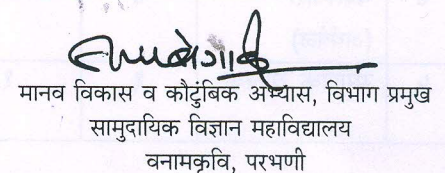 मानव विकास व कौटुंबिक अभ्यास, विभाग प्रमुख
सामुदायिक विज्ञान महाविद्यालय
वनामकृवि, परभणी